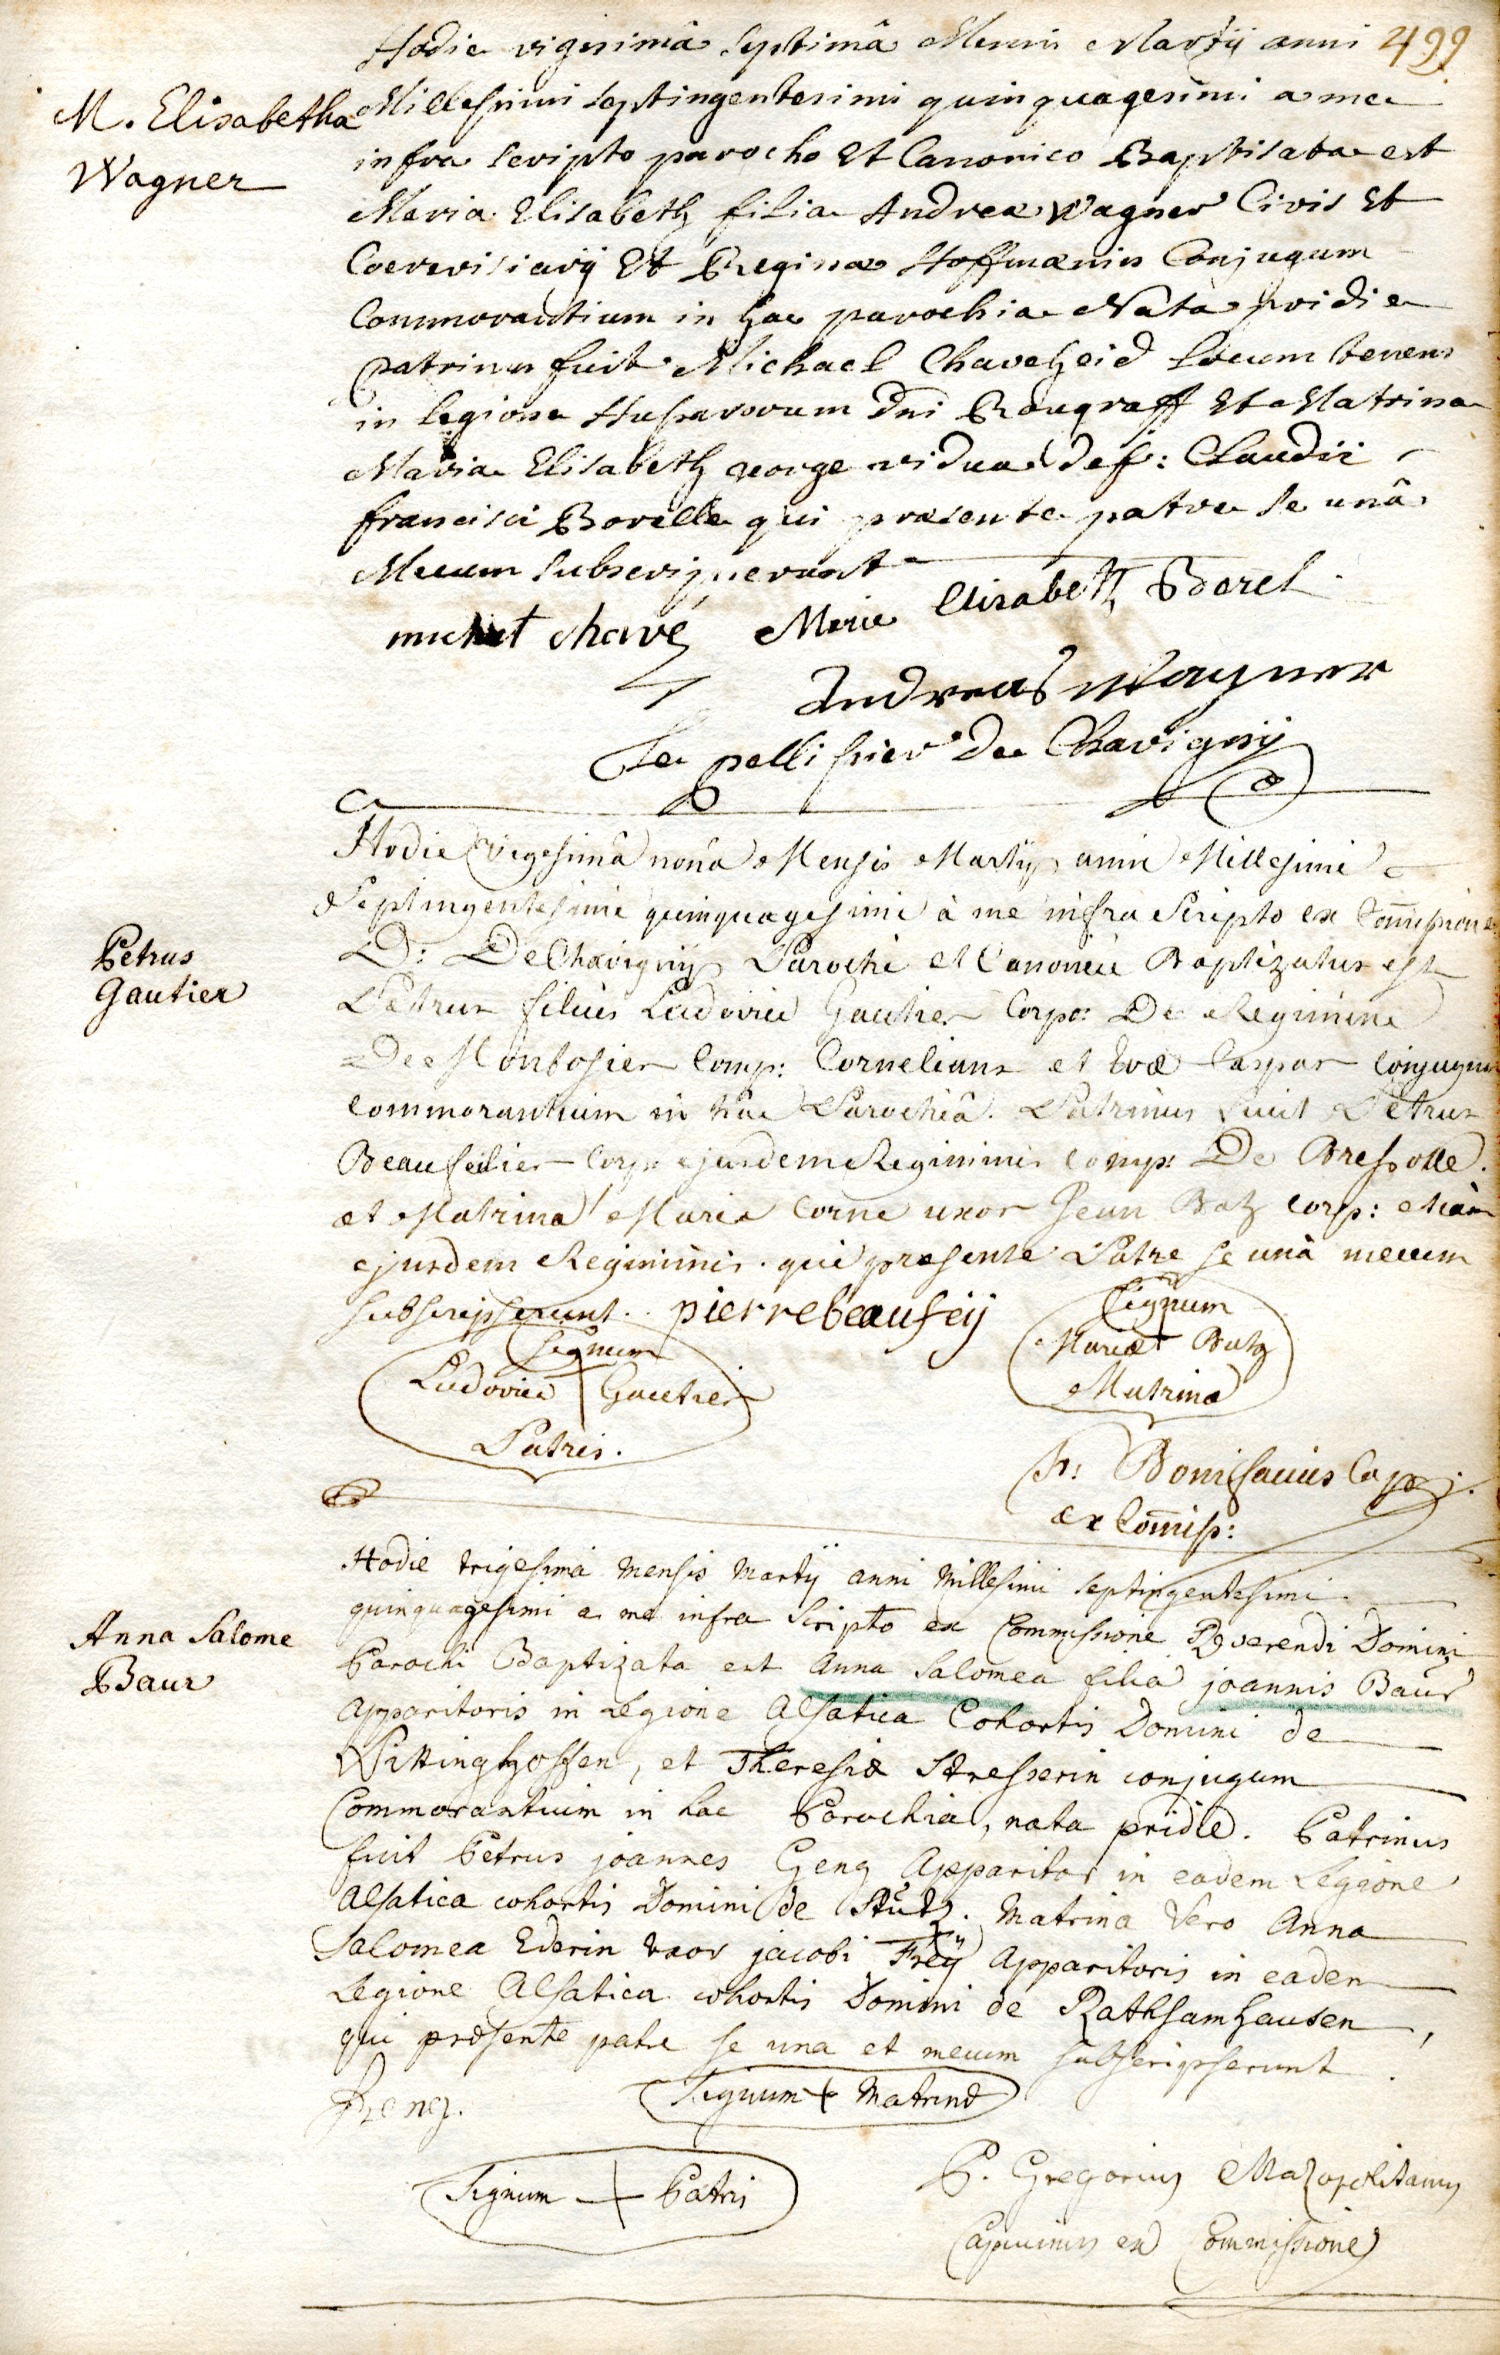 499
Hodie vigesimâ septimâ Mensis Martij anni
M. Elisabetha
Wagner
Millesimi septingentesimi quinquagesimi a me
infra scripto parocho Et Canonico Baptisata est
Maria Elisabeth filia Andreæ Wagner Civis Et
Coerevisiarij Et Reginæ Hoffmænin Conjugum
Commorantium in hac parochia Nata pridie
patrinus fuit Michael Chaveheid locum tenens
in legione Husparorum Dni Raugraff Et Matrina
Maria Elisabeth george vidua def: Claudii
francisci Borelle qui præsente patre se unâ
Mecum subscripserunt
michel chavé Marie Elisabeth Borel
Andreas Wagner
Le pellissier De Chavigny
Hodie vigesimâ nonâ Mensis Martij anni Millesimi
Septingentesimi quinquagesimi à me infra Scripto ex Com̄issione
Petrus
Gautier
D: De Chavignÿ Parochi et Canonici Baptizatus est
Petrus filius Ludovici Gautier Corpo: De Regimine
De Montosier Comp: Cornelians et Evæ Caspar conjugum
commorantium in hâc Parochiâ. Patrinus fuit Petrus
Beaufeilier Corp: ejusdem Regiminis comp: De Bressolle.
et Matrina Maria Corne uxor Jean Batz Corp: etiàm
ejusdem Regiminis. qui præsente Patre se unà mecum
subscripserunt. pierre beaufeij
Signum
Mariæ Batz
Matrinæ
Signum
Ludovici Gautier
Patris.
fr: Bonifacius Cap:
ex Com̄iss:
Hodie trigesimâ Mensis Martij anni Millesimi septingentesimi
quinquagesimi a me infra Scripto ex Commissione Reverendi Domini
Anna Salome
Baur
Parochi Baptizata est Anna Salomea filia joannis Baur
Apparitoris in Legione Alsatica Cohortis Domini de
Wittinghoffen, et Theresiæ Stresserin conjugum
Commorantium in hac Parochia, nata pridie. Patrinus
fuit Petrus joannes Geng Apparitor in eadem Legione
Alsatica cohortis Domini de Stutz. Matrina Vero Anna
Salomea Ederin uxor jacobi Freÿ Apparitoris in eadem
Legione Alsatica cohortis Domini de Rathsamhausen,
qui præsente patre se una et mecum subscripserunt.
Signum + Matrinæ
Signum + Patris
P. Gregorius
Capucinus ex Commissione